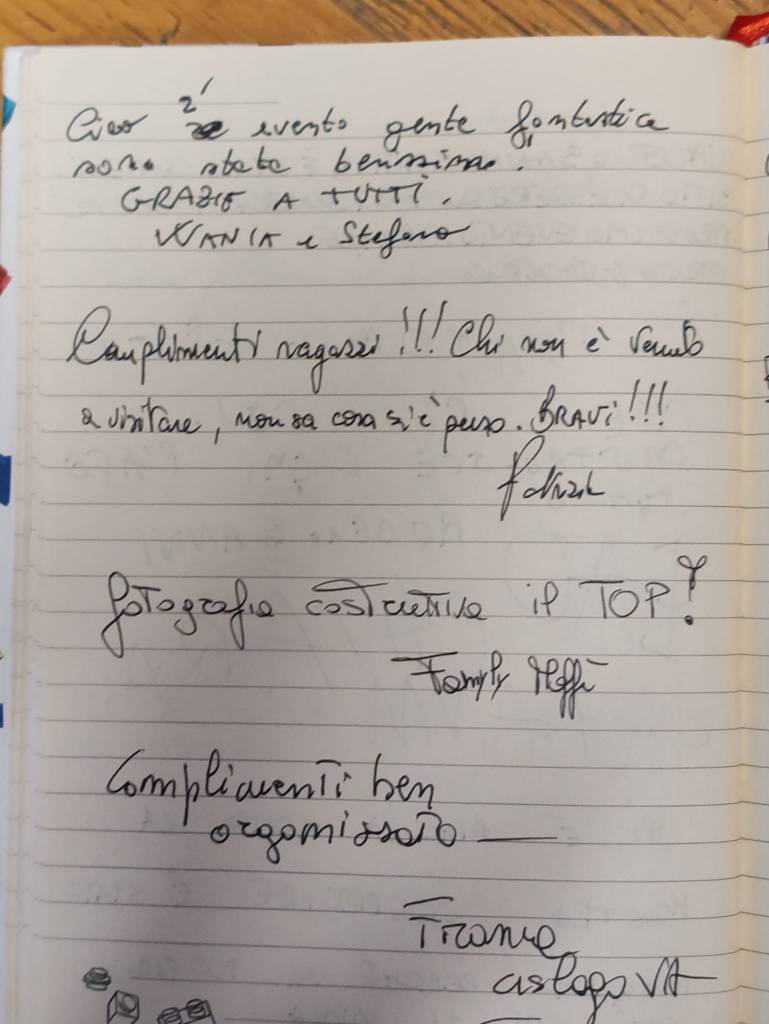 Ciao 2° evento gente fantastica
sono stata benissimo.
GRAZIE A TUTTI.
WANIA e Stefano
Complimenti ragazzi !!! Chi non è venuto
a visitare, non sa cosa si è perso. BRAVI!!!
fotografia costruttiva il TOP!
Family
Complimenti ben
orgamissato
Franco
aslago VA